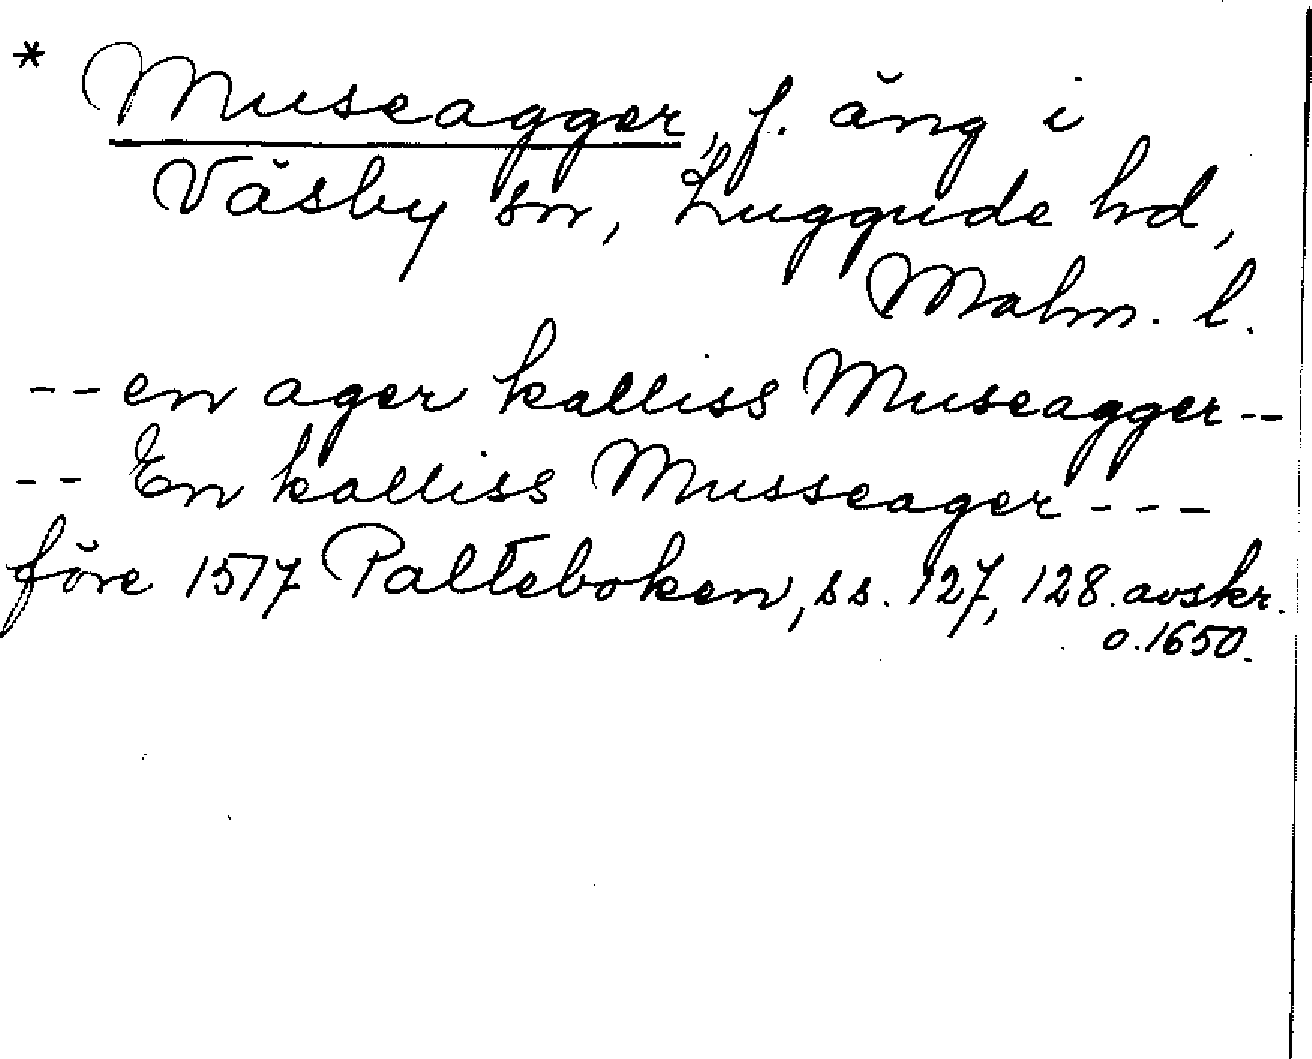 * Museagger, f. äng i
Väsby sn, Luggude hd,
Malm. l.
-- en ager kalliss Museagger --
-- En kalliss Musseager ---
före 1517 Palteboken, ss. 127, 128. avskr.
o. 1650.